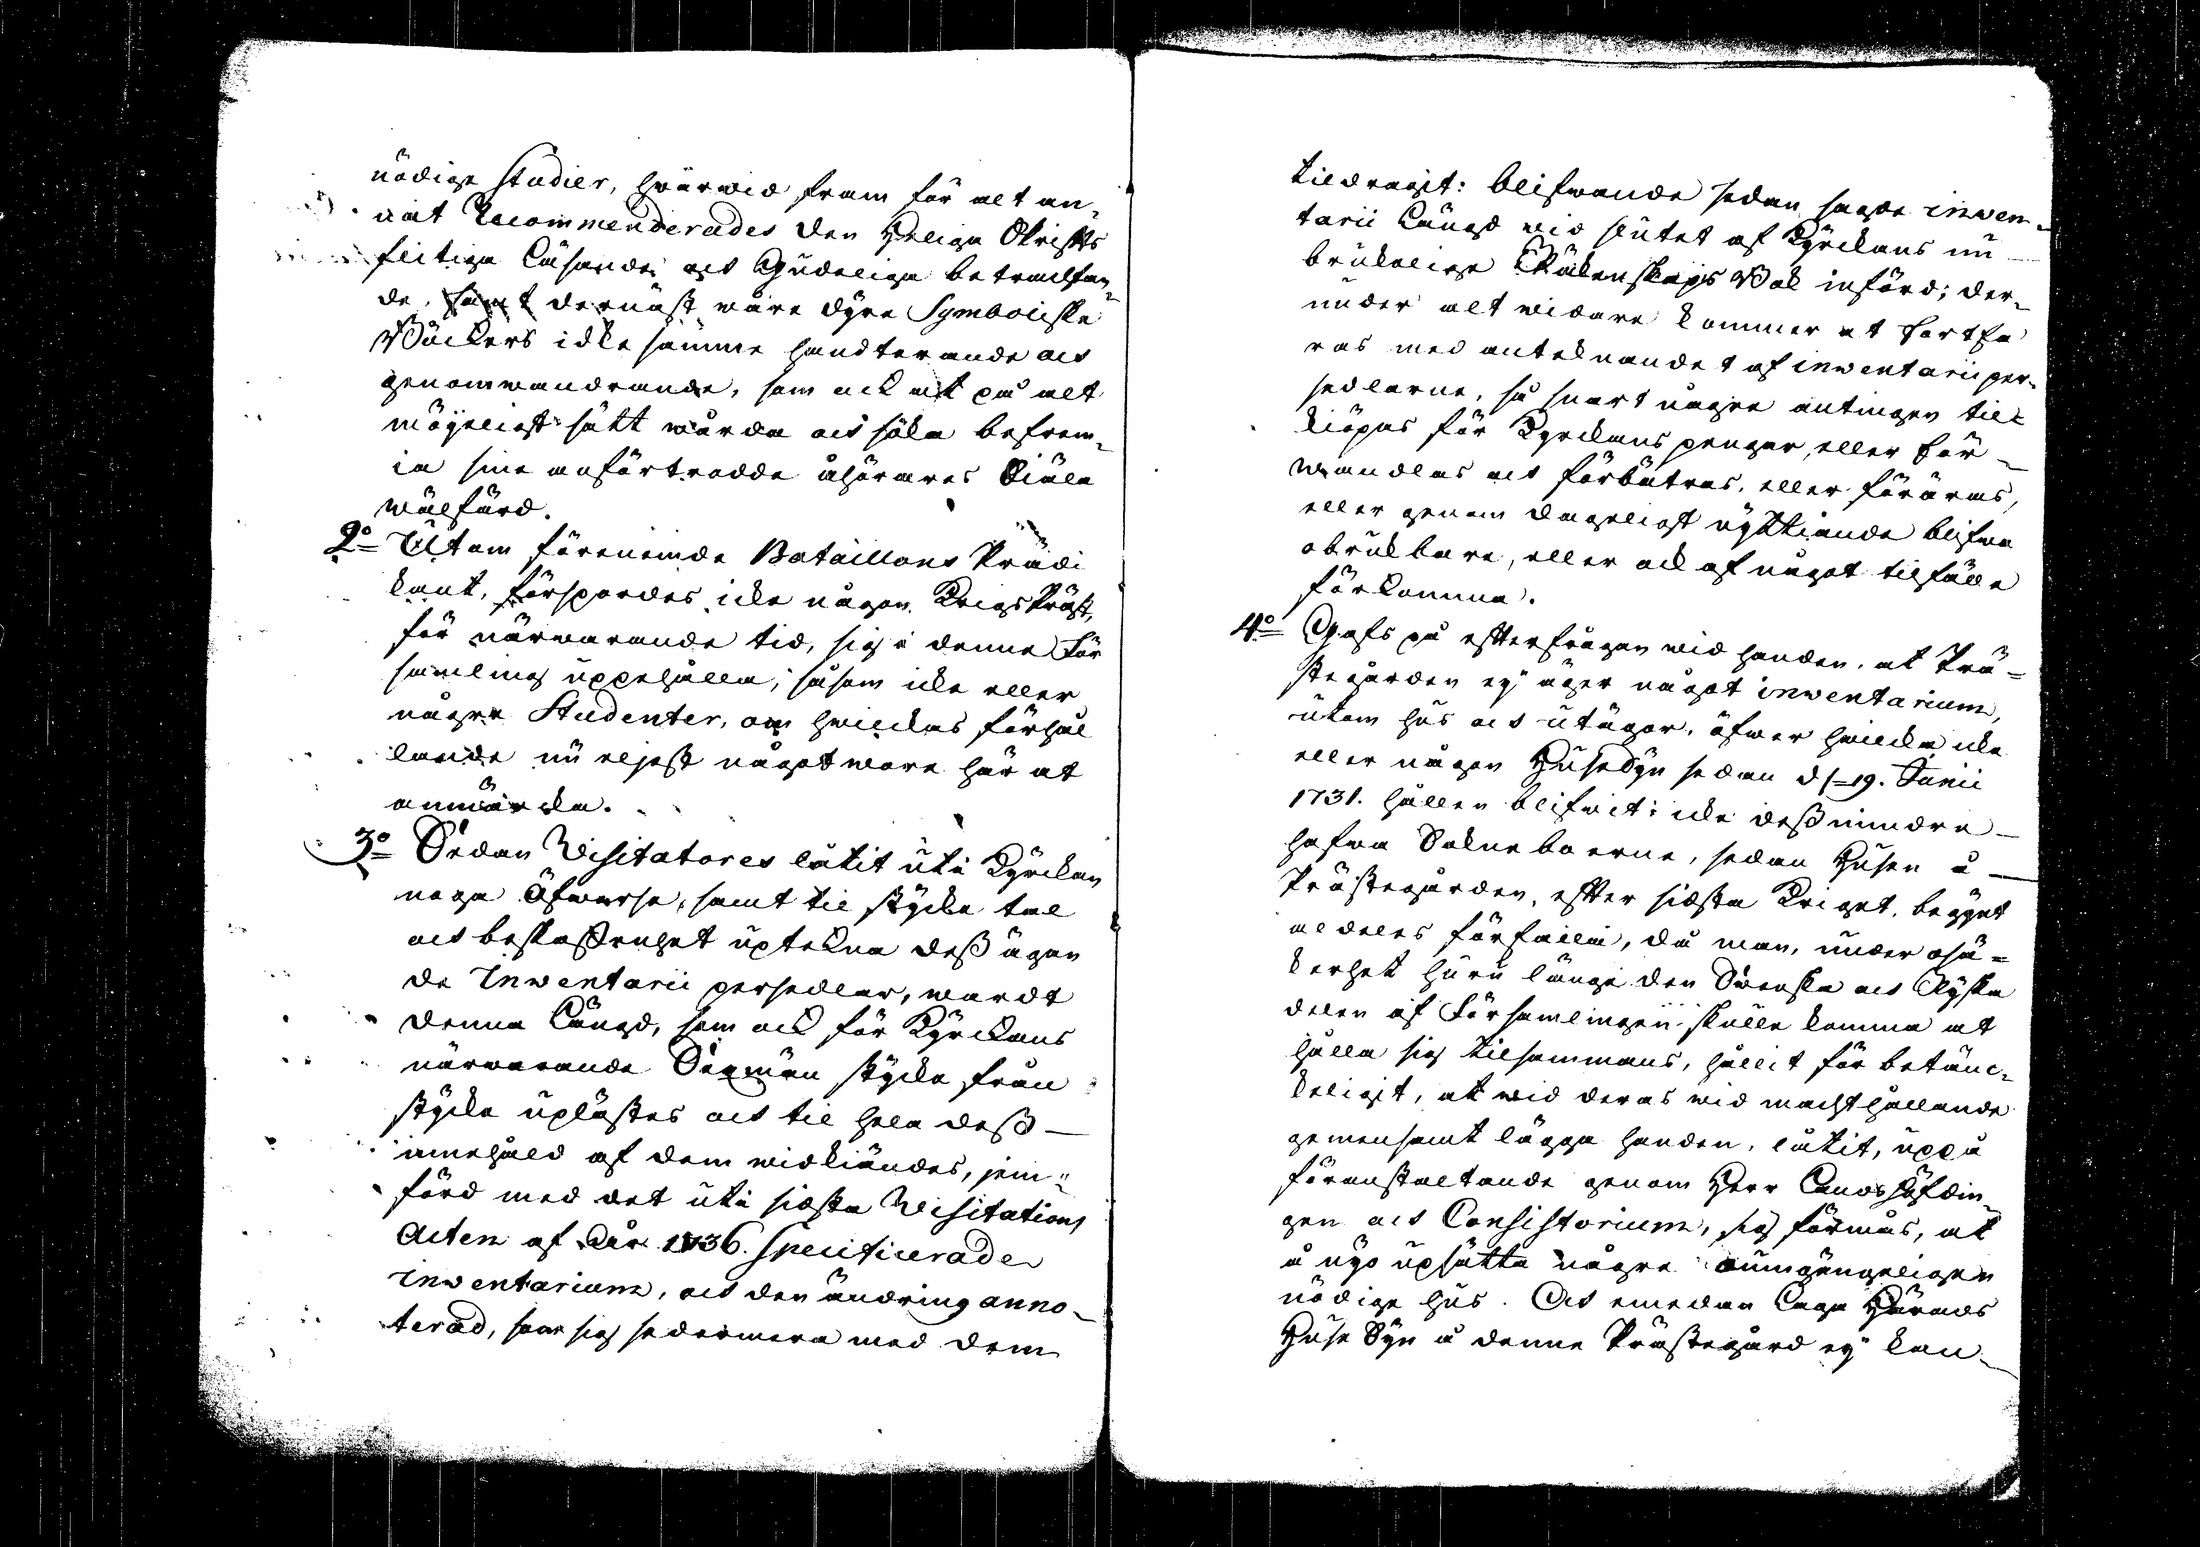 nödige studier, hvarwid fram för alt an-
nat Recommenderades den Helige Skrifts
flitiga Läsande och Gudeliga betracktan-
de, samt dernäst wåre dyra Symboliske
Böckers idkesamme handterande och
genomwandrande, som ock at på alt
möyeligst sätt wårda och söka befräm-
ia sine anförtrodde åhörares Siäla
wälfärd.
2:o Utom förenemde Bataillons Prädi
kant, förspordes icke någon KrigsPräst,
för närwarande tid, sig i denne För
samling uppehålla; såsom icke eller
någre Studenter, om hwilckas förhål
lande nu eljest något wore här at
anmärcka.
3:o Sedan Visitatores låtit uti Kyrckan
noga öfwerse, samt til stycke tal
och beskaffenhet uptekna dess ägan
de Inventarii persedlar, wardt
denna Längd, som ock för Kyrckans
närwarande Sexmän stycke från
stycke uplästes och til hela dess
innehåld af dem widkiändes, jem-
förd med det uti sidsta Visitations
Acten af år 1736. Specificerade
inventarium, och den ändring anno-
terad, som sig sedermera med dem
tildragit: blifwande sedan sagde inven-
tarii Längd wid slutet af Kyrckans nu
brukelige Räkenskaps Bok införd; der-
under alt widare kommer at fortfa
ras med anteknandet af inventarii per-
sedlarne, så snart någre antingen til-
kiöpas för Kyrckans pengar, eller för-
wandlas och förbätras, eller föräras,
eller genom dageligt nyttiande blifwa
obrukbare, eller ock af något tilfälle
förkomma.
4:o Gafs på efterfrågan wid handen, at Prä-
stegården ej äger något inventarium,
utom hus och utägor, öfwer hwilcka icke
eller någon Husesyn sedan d. 19. Junii
1731. hållen blifwit: icke dessmindre
hafwa Sokneboerne, sedan Husen å
Prästegården, efter sidsta Kriget, begynt
aldeles förfalla, då man, under osä-
kerhet huru länge den Swenska och Ryska
delen af Församlingen skulle komma at
hålla sig tilsammans, hållit för betänc-
keligit, at wid deras wid macht hållande
gemensamt lägga handen, låtit, uppå
föranstaltande genom Herr Landshöfdin
gen och Consistorium, sig förmås, at
å nyo upsätta någre oumgängeligen
nödige hus. Och emedan Laga Härads
Huse Syn å denne Prästegård ej kan